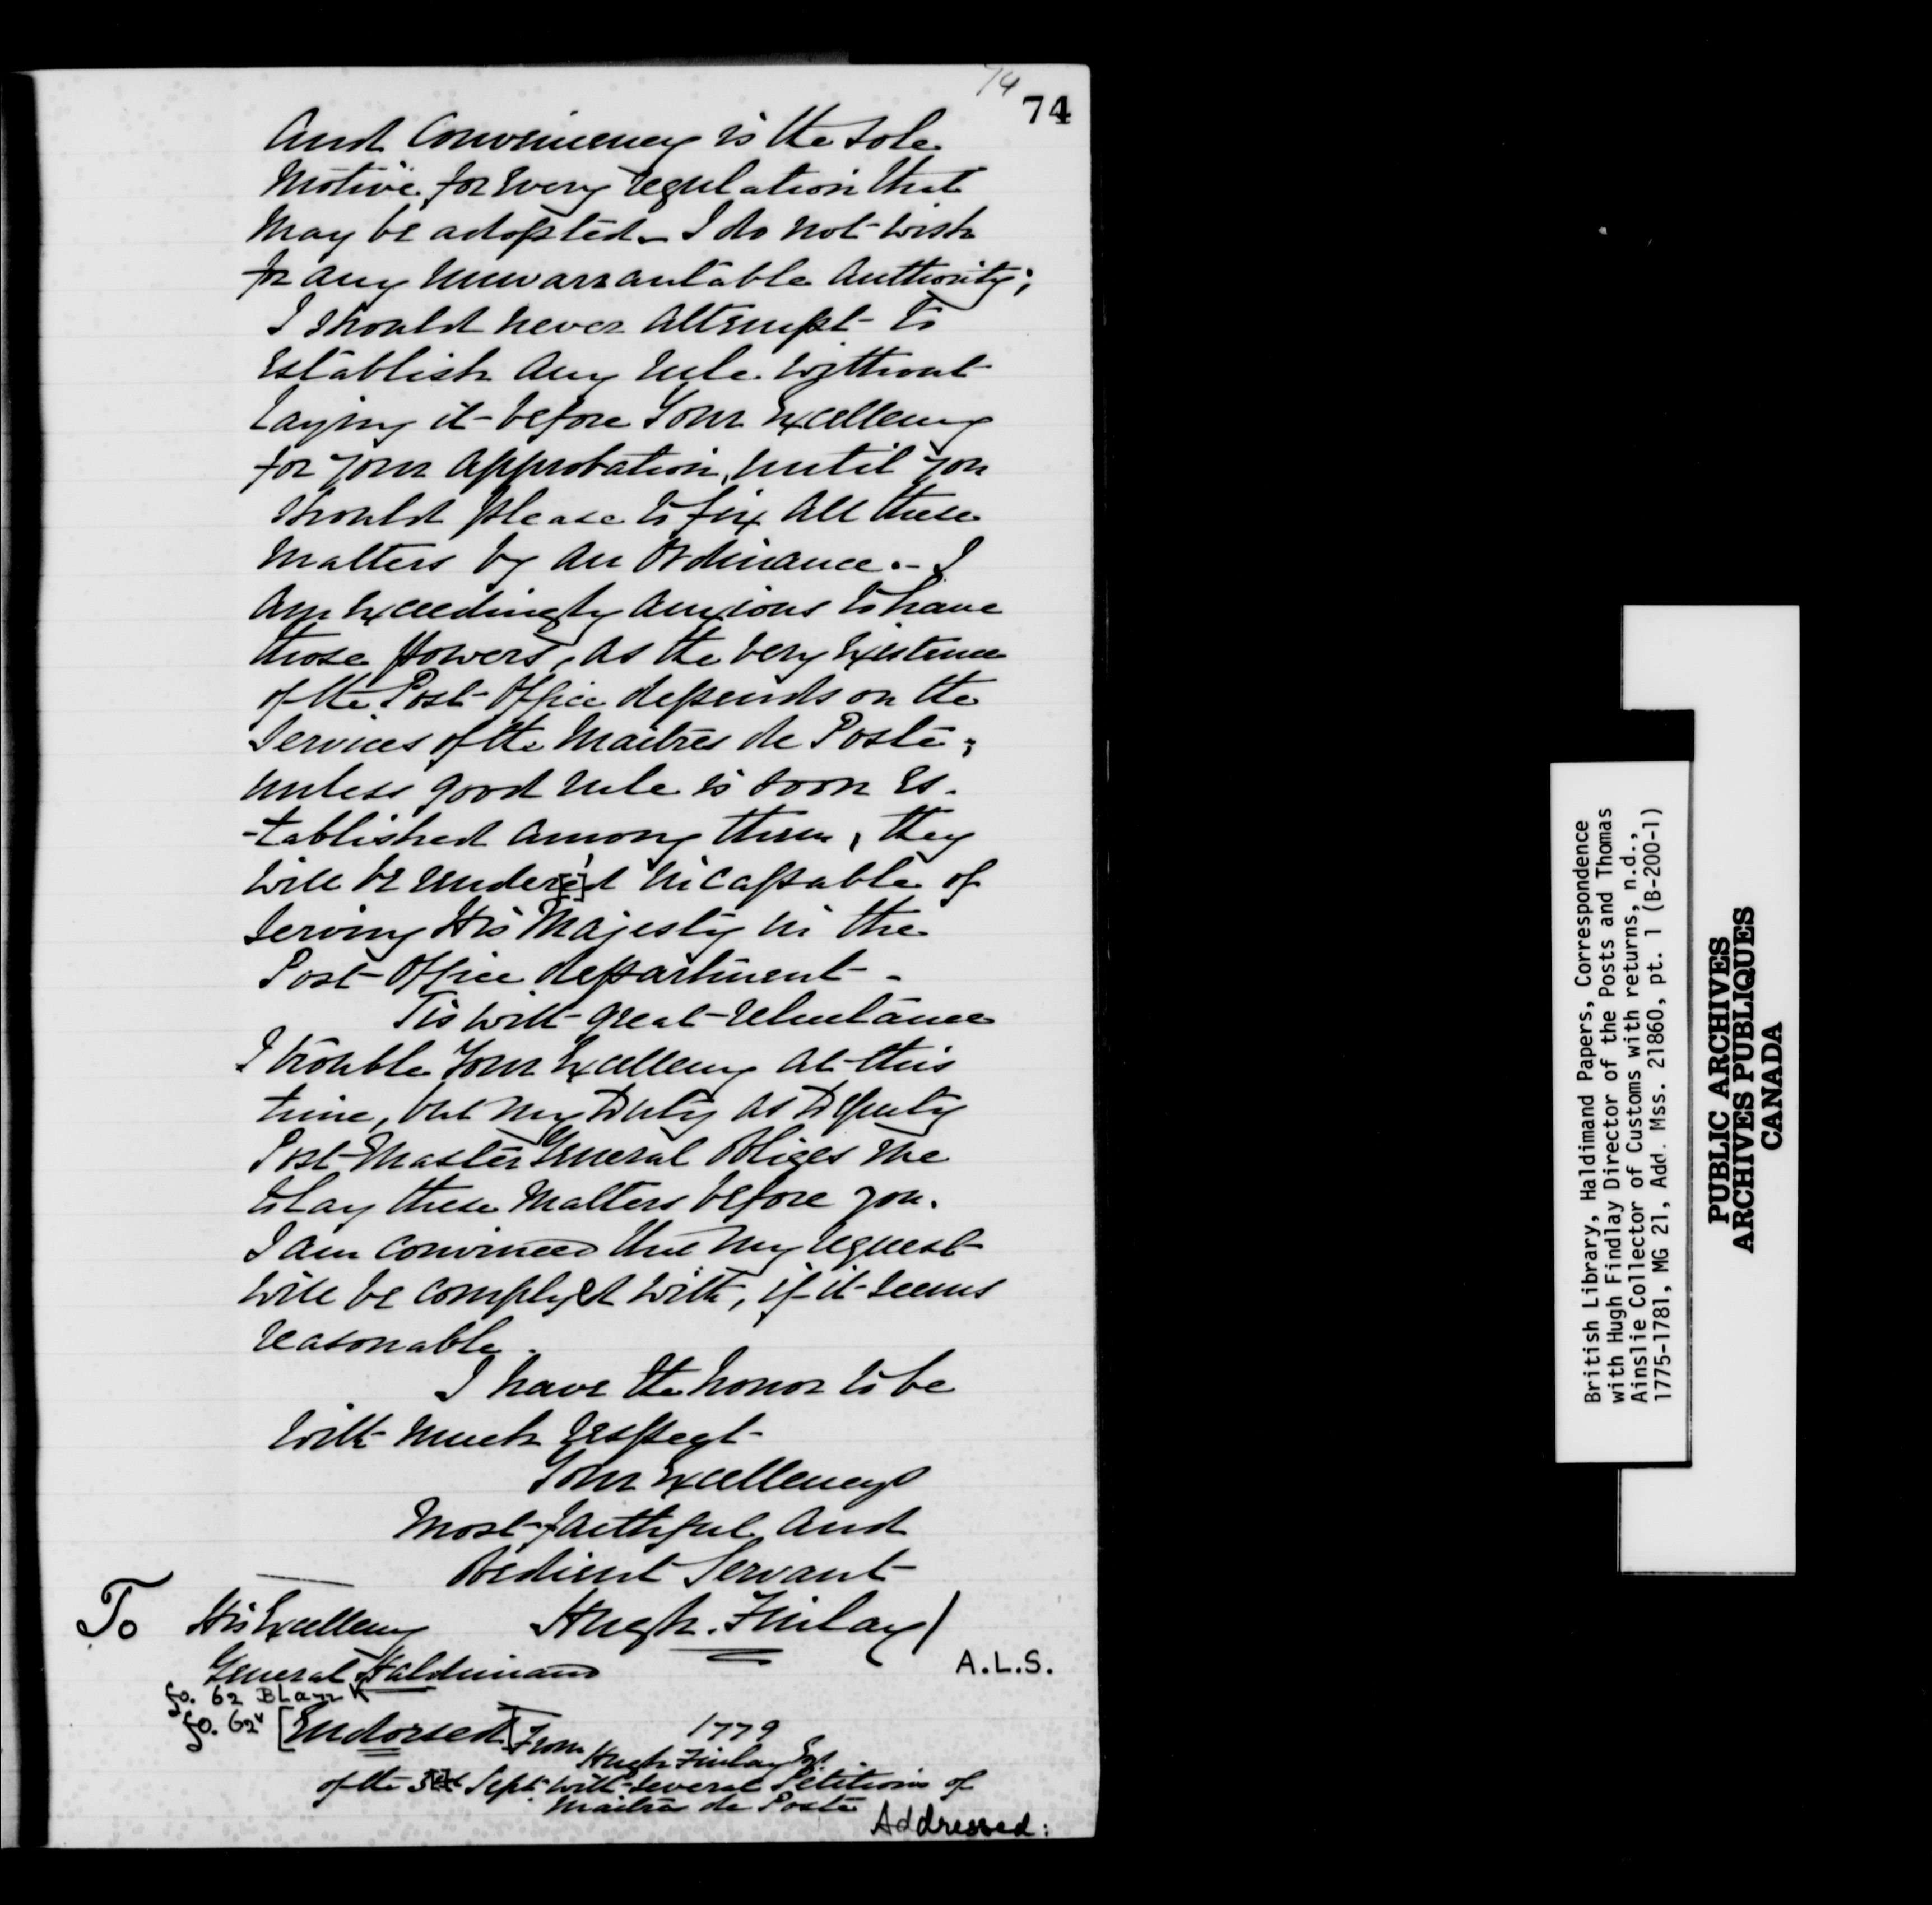 74
74
And Conveniency is the sole
Motive for Every regulation that
May be adopted_ I do not wish
for any unwarrantable Authority;
I should never Attempt to
Establish Any rule without
laying it before Your Excellency
for your Approbation, until you
should please to fix All these
Matters by An Ordinance._ I
Am Exceedingly Anxious to have
those Powers, As the very Existence
of the Post Office depends on the
Services of the Maitres de Poste;
unless good rule is soon Es-
-tablished Among them, they
will be render[e]d incapable of
Serving His Majesty in the
Post-Office department-.
Tis with great reluctance
I trouble Your Excellency At this
time, but my Duty As Deputy
Post Master General Obliges Me
to lay these Matters before you.
I am convinced that my request
will be complyed with, if it seems
reasonable.
I have the honor to be
with Much Respect
Your Excellencys
Most faithful And
Obedient Servant
Hugh. Finlay/
To His Excellency
General Haldimand
A.L.S.
fo. 62 Blank
fo. 62v [Endorsed] From 1779
Hugh Finlay Esqr
of the Sept. with Several Petitions of
Maitres de Poste
Addressed:
British Library, Haldimand Papers, Correspondence
with Hugh Findlay Director of the Posts and Thomas
Ainslie Collector of Customs with returns, n.d.,
1775-1781, MG 21, Add. Mss. 21860, pt. 1 (B-200-1)
PUBLIC ARCHIVES
ARCHIVES PUBLIQUES
CANADA